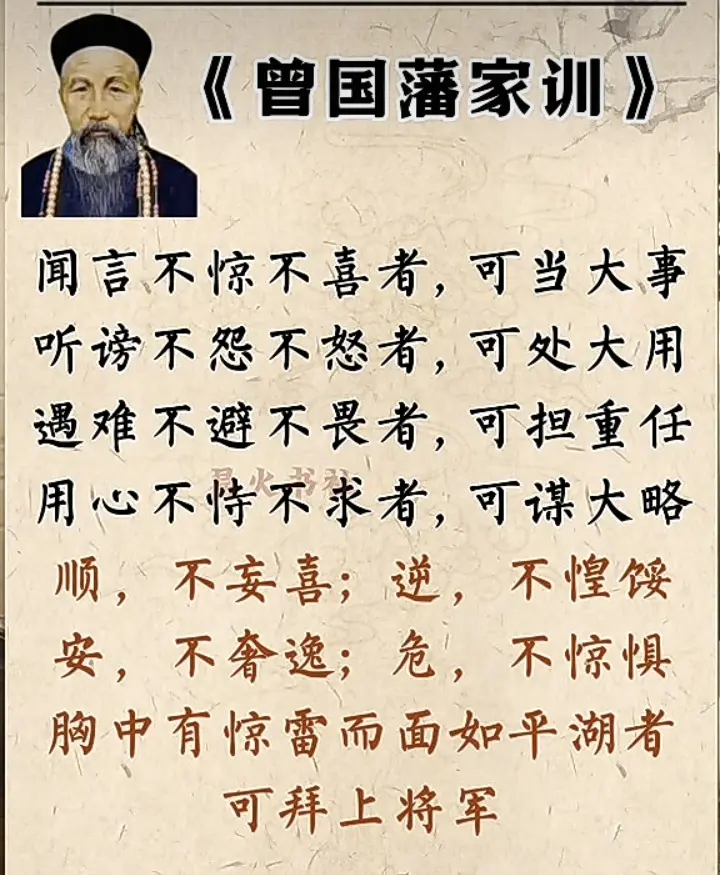 《曾国藩家训》
闻言不惊不喜者,可当大事
听谤不怨不怒者,可处大用
遇难不避不畏者,可担重任
用心不恃不求者,可谋大略
顺，不妄喜；逆，不惶馁
安，不奢逸；危，不惊惧
胸中有惊雷而面如平湖者
可拜上将军